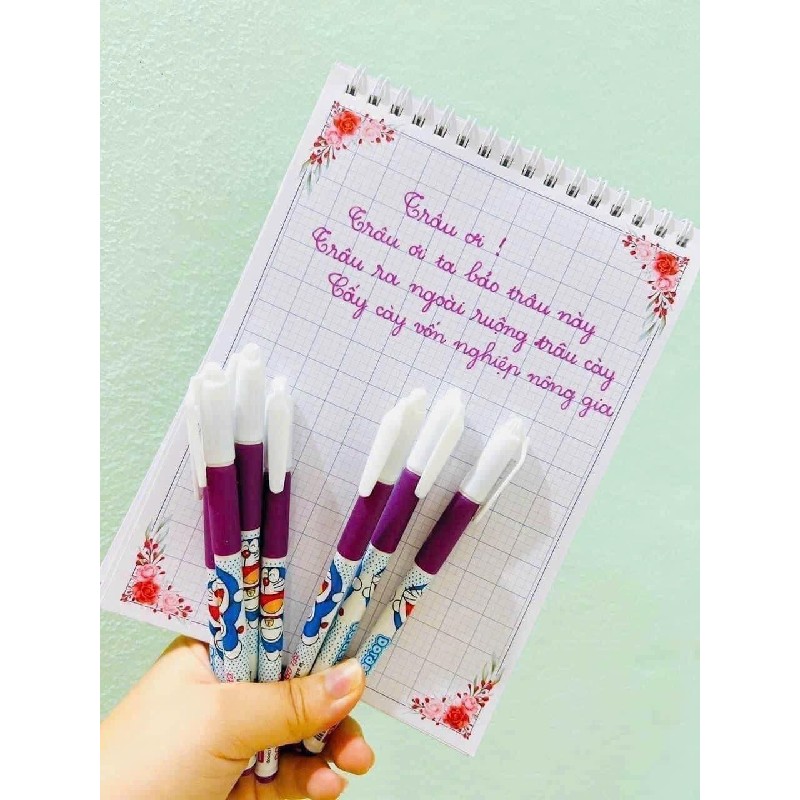 Trâu ơi !
Trâu ơi ta bảo trâu này
Trâu ra ngoài ruộng trâu cày
Cấy cày vốn nghiệp nông gia